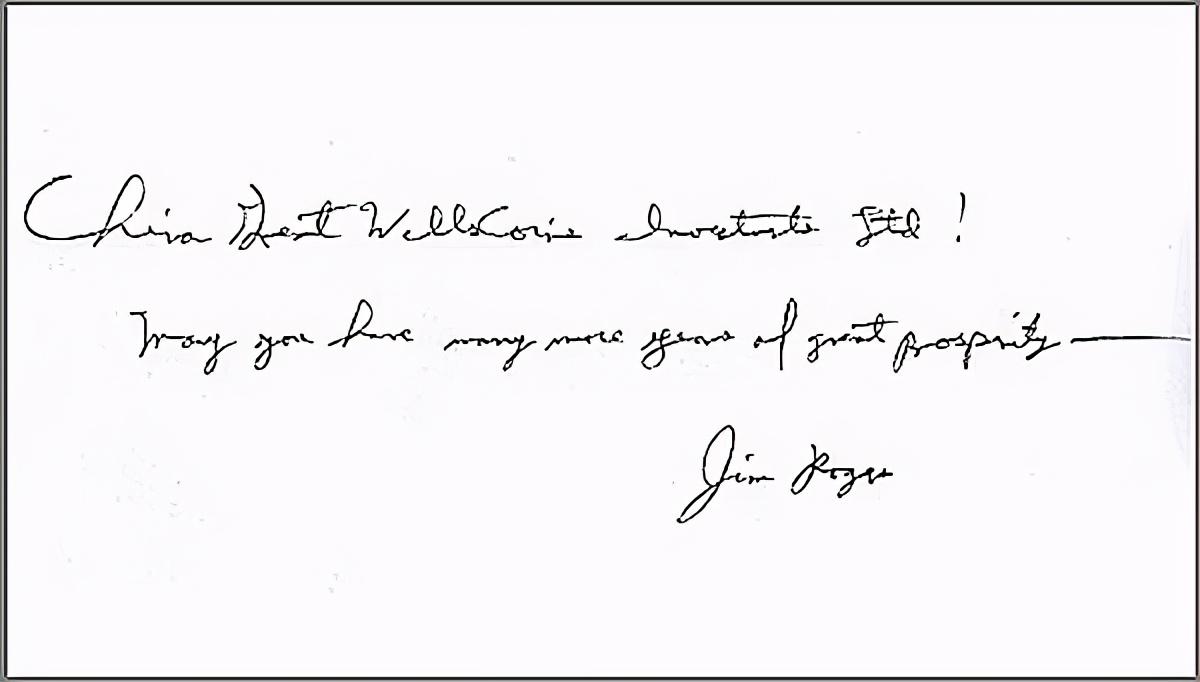 China Best WellsCorie Investments Ltd!
May you have many more years of great prosperity
Jim Rogers